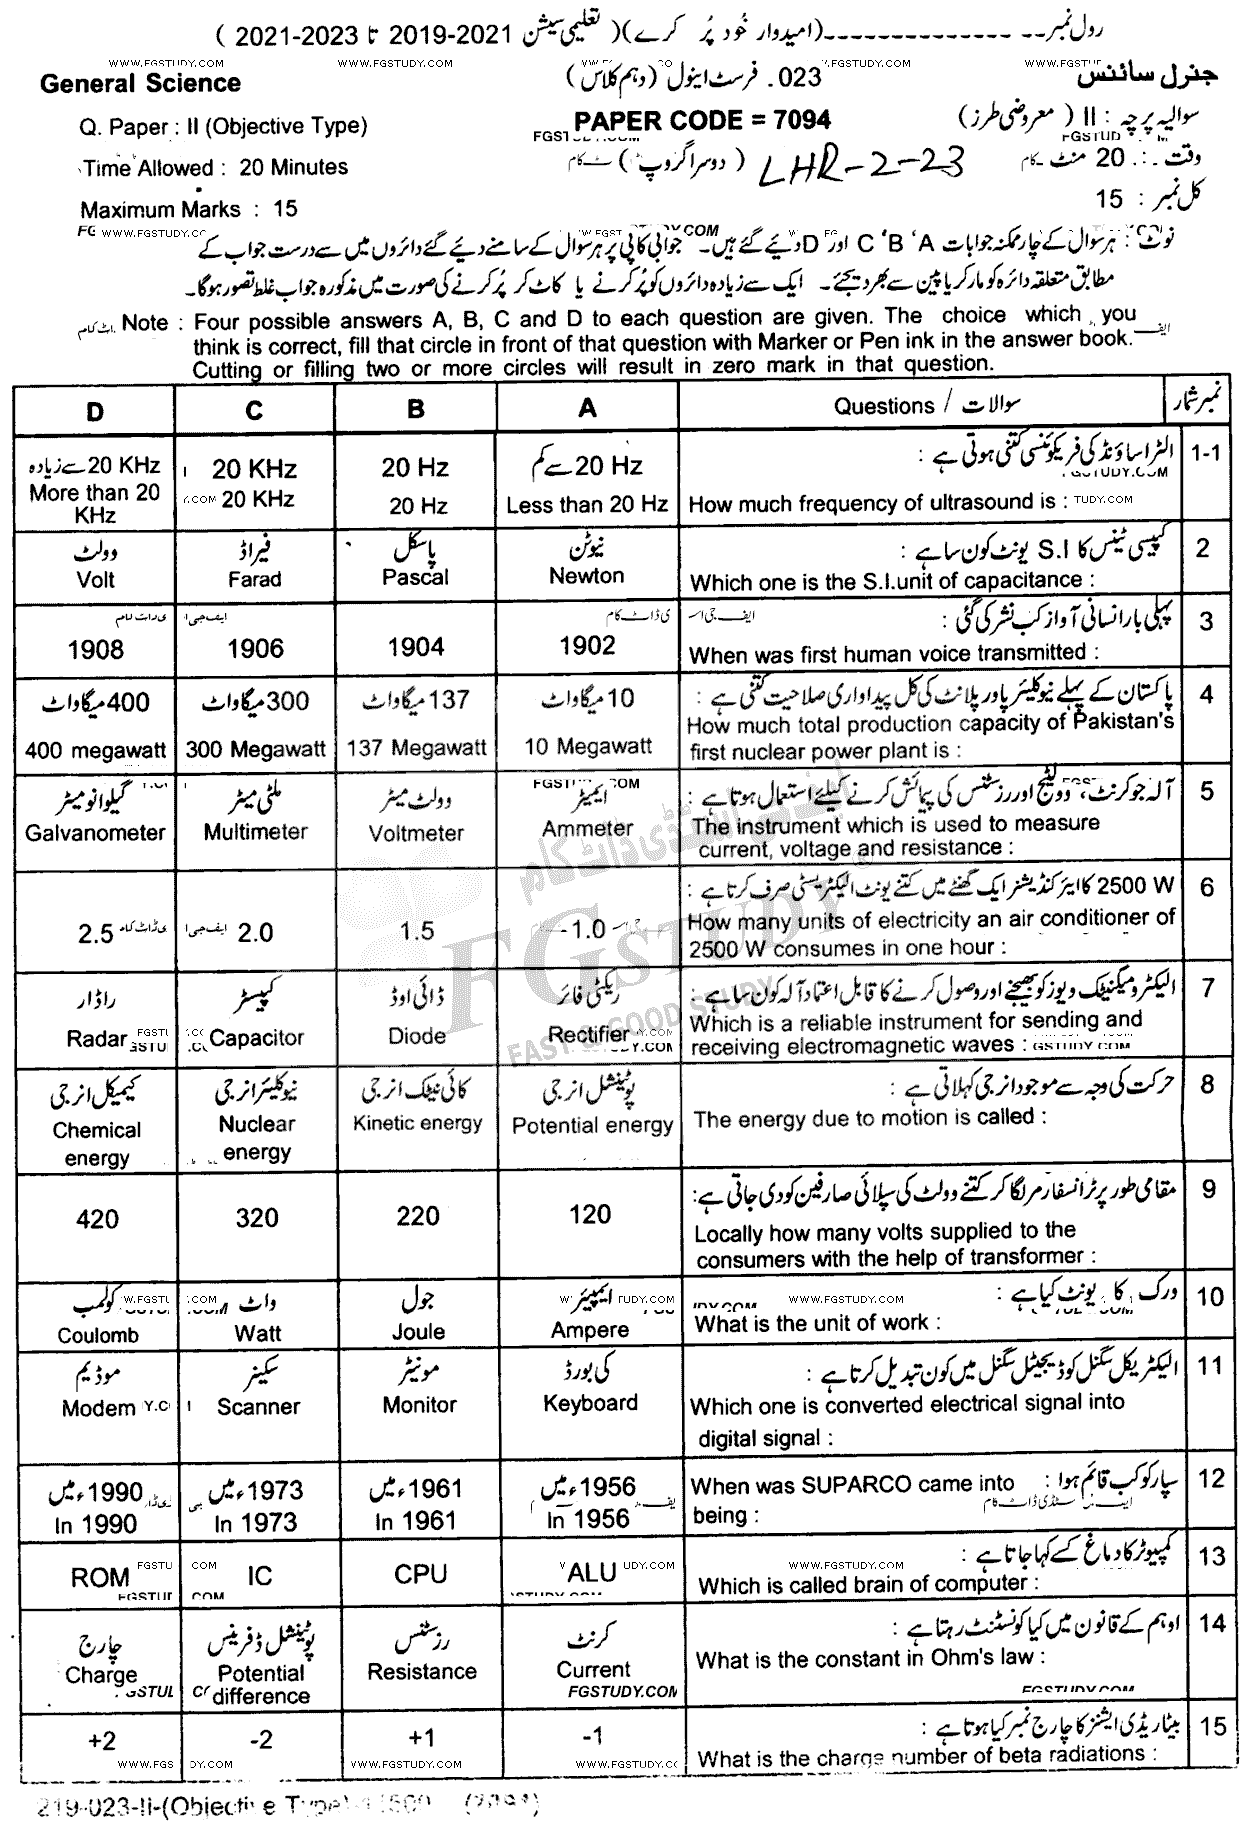 رول نمبر --------------(امیدوار خُود پُر کرے)( تعلیمی سیشن 2021-2019 تا 2023-2021 )
WWW.FGSTUDY.COM WWW.FGSTUDY.COM WWW.FGSTUDY.COM
General Science 023. فرسٹ اینول (دہم کلاس) جنرل سائنس
Q. Paper : II (Objective Type) PAPER CODE = 7094 سوالیہ پرچہ : II ( معروضی طرز)
Time Allowed : 20 Minutes (دوسرا گروپ) LHR-2-23 وقت : 20 منٹ
Maximum Marks : 15 کل نمبر : 15
WWW.FGSTUDY.CO
نوٹ : ہر سوال کے چار ممکنہ جوابات A ‘B ‘C اور D دیئے گئے ہیں۔ جوابی کاپی پر ہر سوال کے سامنے دیئے گئے دائروں میں سے درست جواب کے
مطابق متعلقہ دائرہ کو مارکر یا پین سے بھر دیجئے۔ ایک سے زیادہ دائروں کو پُر کرنے یا کاٹ کر پُر کرنے کی صورت میں مذکورہ جواب غلط تصور ہوگا۔
Note : Four possible answers A, B, C and D to each question are given. The choice which you
think is correct, fill that circle in front of that question with Marker or Pen ink in the answer book.
Cutting or filling two or more circles will result in zero mark in that question.
D C B A Questions / سوالات نمبر شمار
20 KHz سے زیادہ 20 KHz 20 Hz 20 Hz سے کم الٹرا ساؤنڈ کی فریکوئنسی کتنی ہوتی ہے : 1-1
More than 20 KHz 20 KHz 20 Hz Less than 20 Hz How much frequency of ultrasound is :
وولٹ فیراڈ پاسکل نیوٹن کپیسی ٹینس کا S.I یونٹ کون سا ہے : 2
Volt Farad Pascal Newton Which one is the S.I.unit of capacitance :
پہلی بار انسانی آواز کب نشر کی گئی : 3
1908 1906 1904 1902 When was first human voice transmitted :
400 میگاواٹ 300 میگاواٹ 137 میگاواٹ 10 میگاواٹ پاکستان کے پہلے نیوکلیئر پاور پلانٹ کی کل پیداواری صلاحیت کتنی ہے : 4
400 megawatt 300 Megawatt 137 Megawatt 10 Megawatt How much total production capacity of Pakistan's
first nuclear power plant is :
گیلوانومیٹر ملٹی میٹر وولٹ میٹر ایمیٹر آلہ جو کرنٹ، وولٹیج اور رزسٹنس کی پیمائش کرنے کیلئے استعمال ہوتا ہے : 5
Galvanometer Multimeter Voltmeter Ammeter The instrument which is used to measure
current, voltage and resistance :
2500 W کا ایئر کنڈیشنر ایک گھنٹے میں کتنے یونٹ الیکٹریسٹی صرف کرتا ہے : 6
2.5 2.0 1.5 1.0 How many units of electricity an air conditioner of
2500 W consumes in one hour :
راڈار کپیسٹر ڈائی اوڈ ریکٹی فائر الیکٹرومیگنیٹک ویوز کو بھیجنے اور وصول کرنے کا قابل اعتماد آلہ کون سا ہے : 7
Radar Capacitor Diode Rectifier Which is a reliable instrument for sending and
receiving electromagnetic waves :
کیمیکل انرجی نیوکلیئر انرجی کائی نیٹک انرجی پوٹینشل انرجی حرکت کی وجہ سے موجود انرجی کہلاتی ہے : 8
Chemical energy Nuclear energy Kinetic energy Potential energy The energy due to motion is called :
مقامی طور پر ٹرانسفارمر لگا کر کتنے وولٹ کی سپلائی صارفین کو دی جاتی ہے : 9
420 320 220 120 Locally how many volts supplied to the
consumers with the help of transformer :
کولمب واٹ جول ایمپیئر ورک کا یونٹ کیا ہے : 10
Coulomb Watt Joule Ampere What is the unit of work :
موڈیم سکینر مونیٹر کی بورڈ الیکٹریکل سگنل کو ڈیجیٹل سگنل میں کون تبدیل کرتا ہے : 11
Modem Scanner Monitor Keyboard Which one is converted electrical signal into
digital signal :
1990ء میں 1973ء میں 1961ء میں 1956ء میں When was SUPARCO came into سپارکو کب قائم ہوا : 12
In 1990 In 1973 In 1961 In 1956 being :
کمپیوٹر کا دماغ کسے کہا جاتا ہے : 13
ROM IC CPU ALU Which is called brain of computer :
چارج پوٹینشل ڈفرینس رزسٹنس کرنٹ اوہم کے قانون میں کیا کونسٹنٹ رہتا ہے : 14
Charge Potential difference Resistance Current What is the constant in Ohm's law :
FGSTUDY.COM
بیٹا ریڈی ایشنز کا چارج نمبر کیا ہوتا ہے : 15
+2 -2 +1 -1 What is the charge number of beta radiations :
WWW.FGSTUDY.COM
FGSTUDY
FAST & GOOD STUDY
219-023-II-(Objective Type)- (7094)